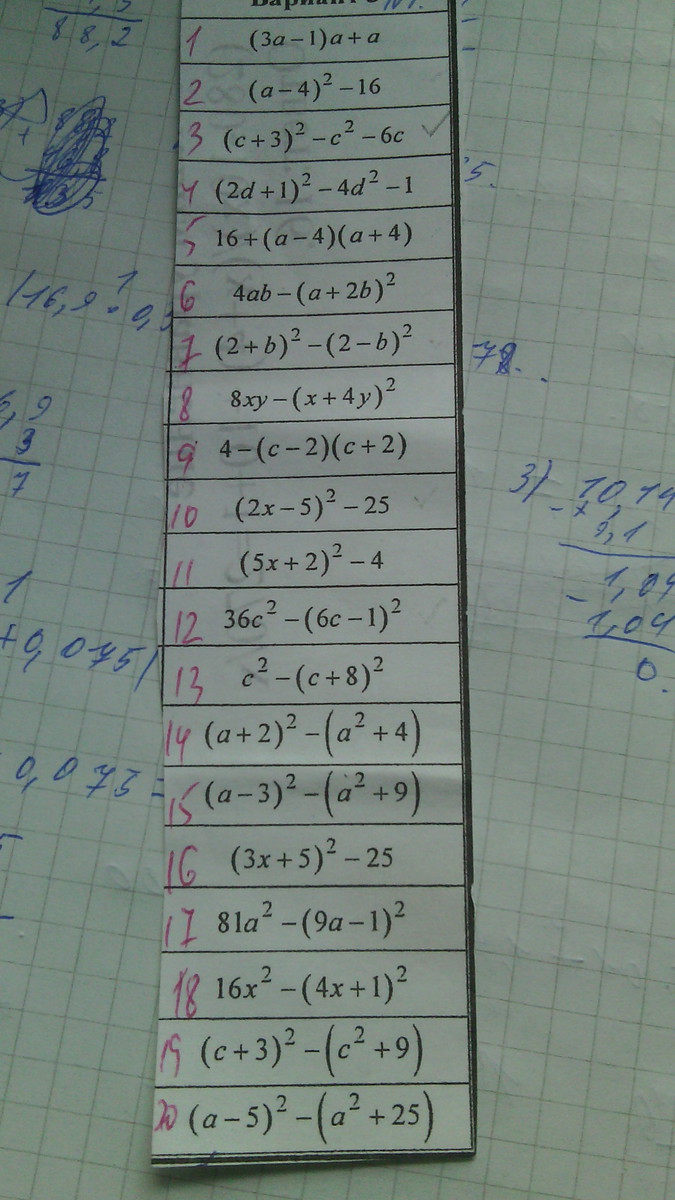 88,2
Вариант
1 (3a−1)a+a
2 (a−4)²−16
3 (c+3)²−c²−6c ✓
4 (2d+1)²−4d²−1
5.
5 16+(a−4)(a+4)
6 4ab−(a+2b)²
7 (2+b)²−(2−b)²
8 8xy−(x+4y)²
9 4−(c−2)(c+2)
10 (2x−5)²−25
11 (5x+2)²−4
12 36c²−(6c−1)²
13 c²−(c+8)²
14 (a+2)²−(a²+4)
15 (a−3)²−(a²+9)
16 (3x+5)²−25
17 81a²−(9a−1)²
18 16x²−(4x+1)²
19 (c+3)²−(c²+9)
20 (a−5)²−(a²+25)
3
7
1
+0,075)
0,075=
3) 10,14
1,04
1,04
0.